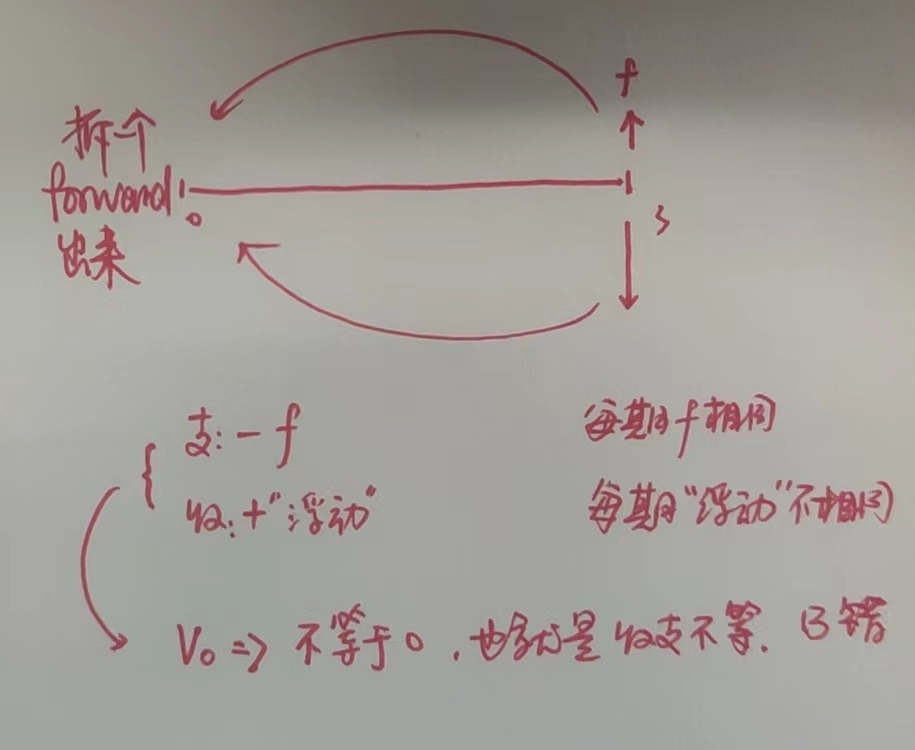 f
拆个
forward
0
1
出来
支: - f
每期 f 相同
收: + “浮动”
每期“浮动”不相同
V₀ => 不等于0，也就是收支不等. B错